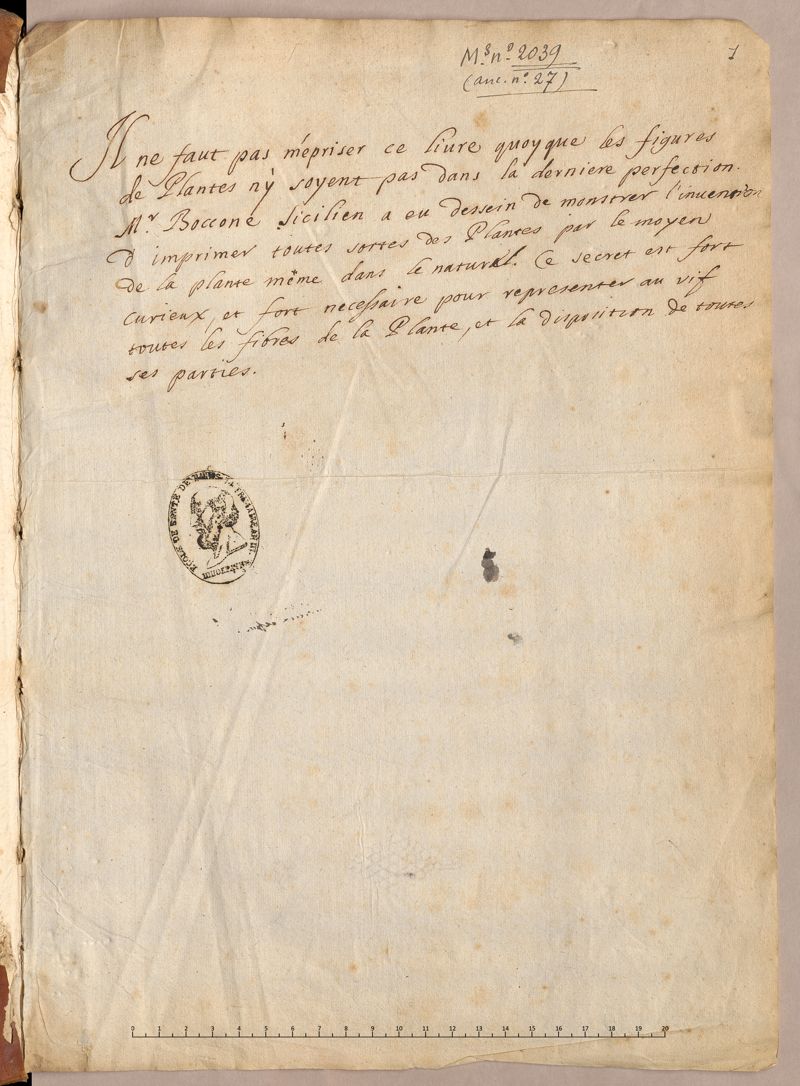 Ms. no. 2039
(anc. no. 27)
1
Il ne faut pas mépriser ce liure quoyque les figures
de Plantes n'y soyent pas dans la derniere perfection.
Mr. Boccone Sicilien a eu dessein de monstrer l'inuention
d imprimer toutes sortes des Plantes par le moyen
de la plante même dans le natural. Ce secret est fort
curieux, et fort necessaire pour representer au vif
toutes les fibres de la Plante, et la disposition de toutes
ses parties.
ECOLE DE SANTÉ DE
0 1 2 3 4 5 6 7 8 9 10 11 12 13 14 15 16 17 18 19 20